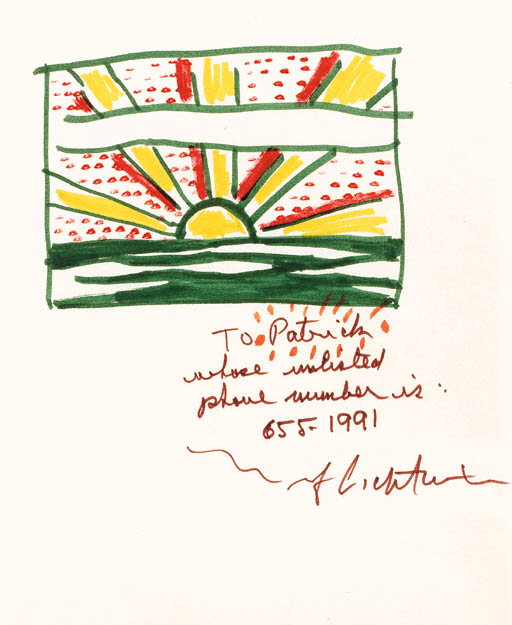 To Patrick
whose unlisted
phone number is :
655-1991
rf Lichtenstein